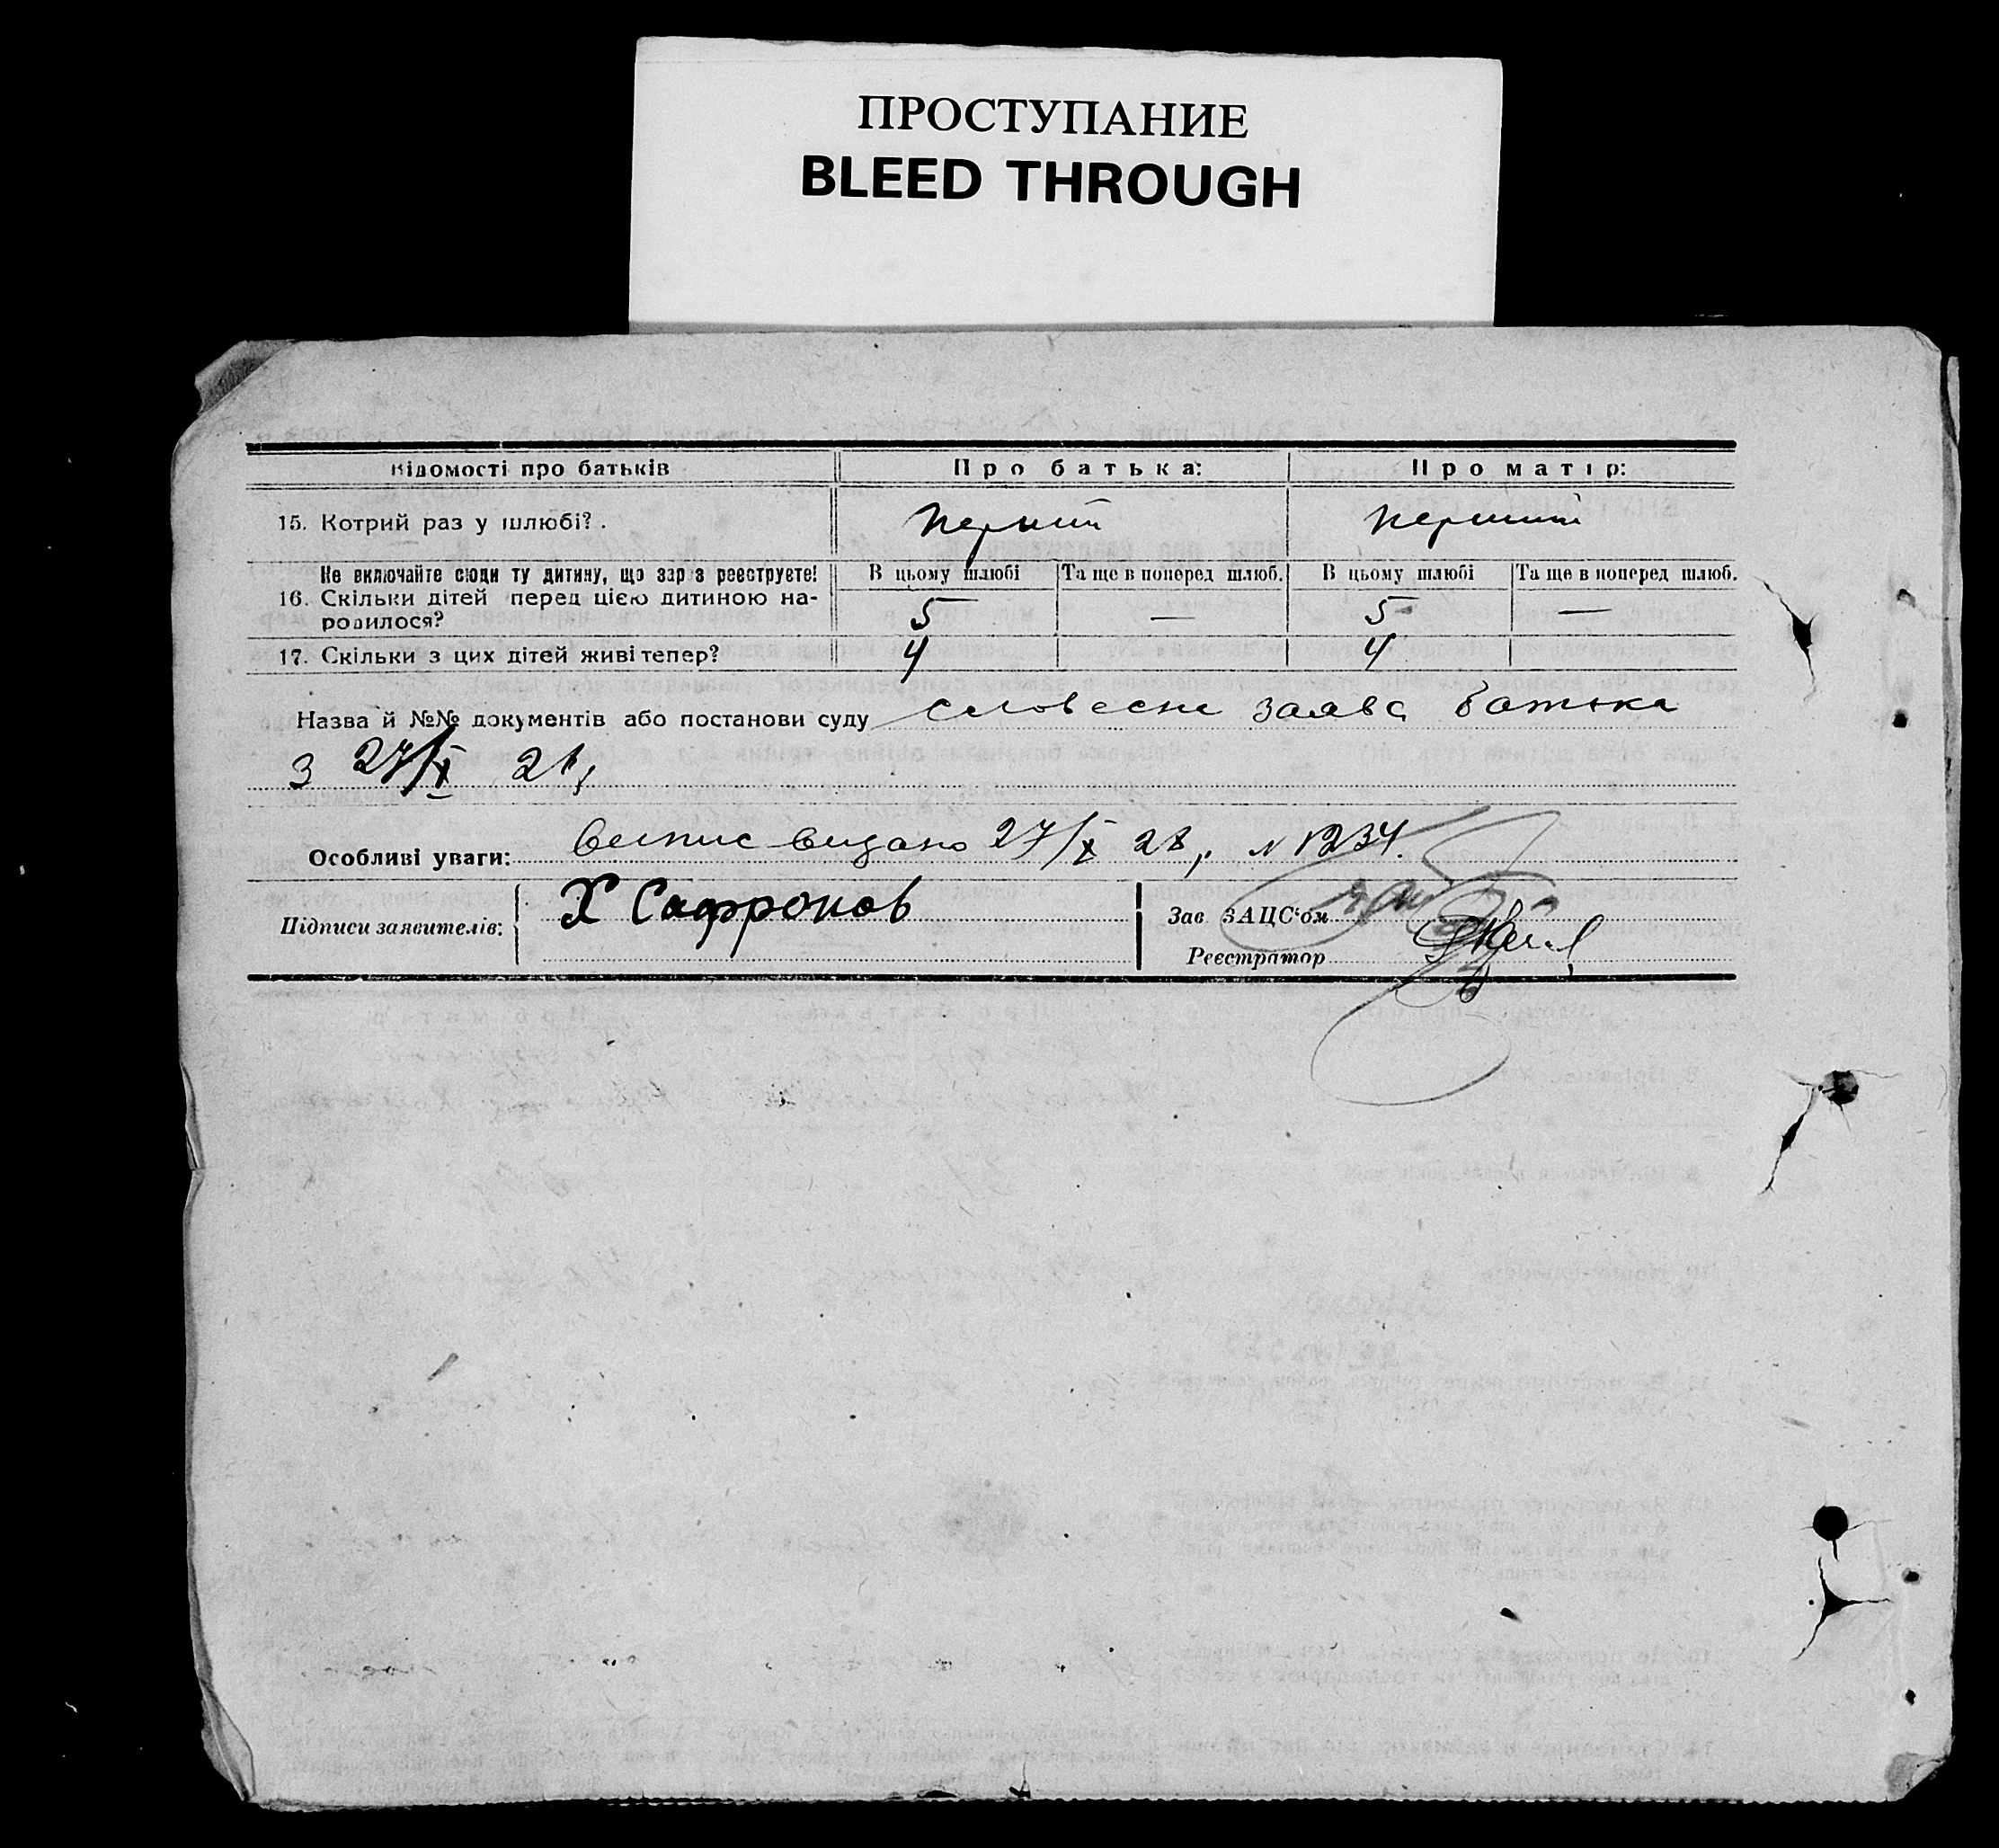 ПРОСТУПАНИЕ
BLEED THROUGH
Відомості про батьків Про батька: Про матір:
15. Котрий раз у шлюбі? перший перший
Не включайте сюди ту дитину, що зараз реєструєте! В цьому шлюбі Та ще в поперед шлюб. В цьому шлюбі Та ще в поперед шлюб.
16. Скільки дітей перед цією дитиною на- 5 — 5 —
родилося?
17. Скільки з цих дітей живі тепер? 4 4
Назва й №№ документів або постанови суду словесна заява батька
з 27/X 28,
Особливі уваги: випис видано 27/X 28, № 1234.
Підписи заявителів: Х Сафронов Зав ЗАЦС'ом
Реєстратор